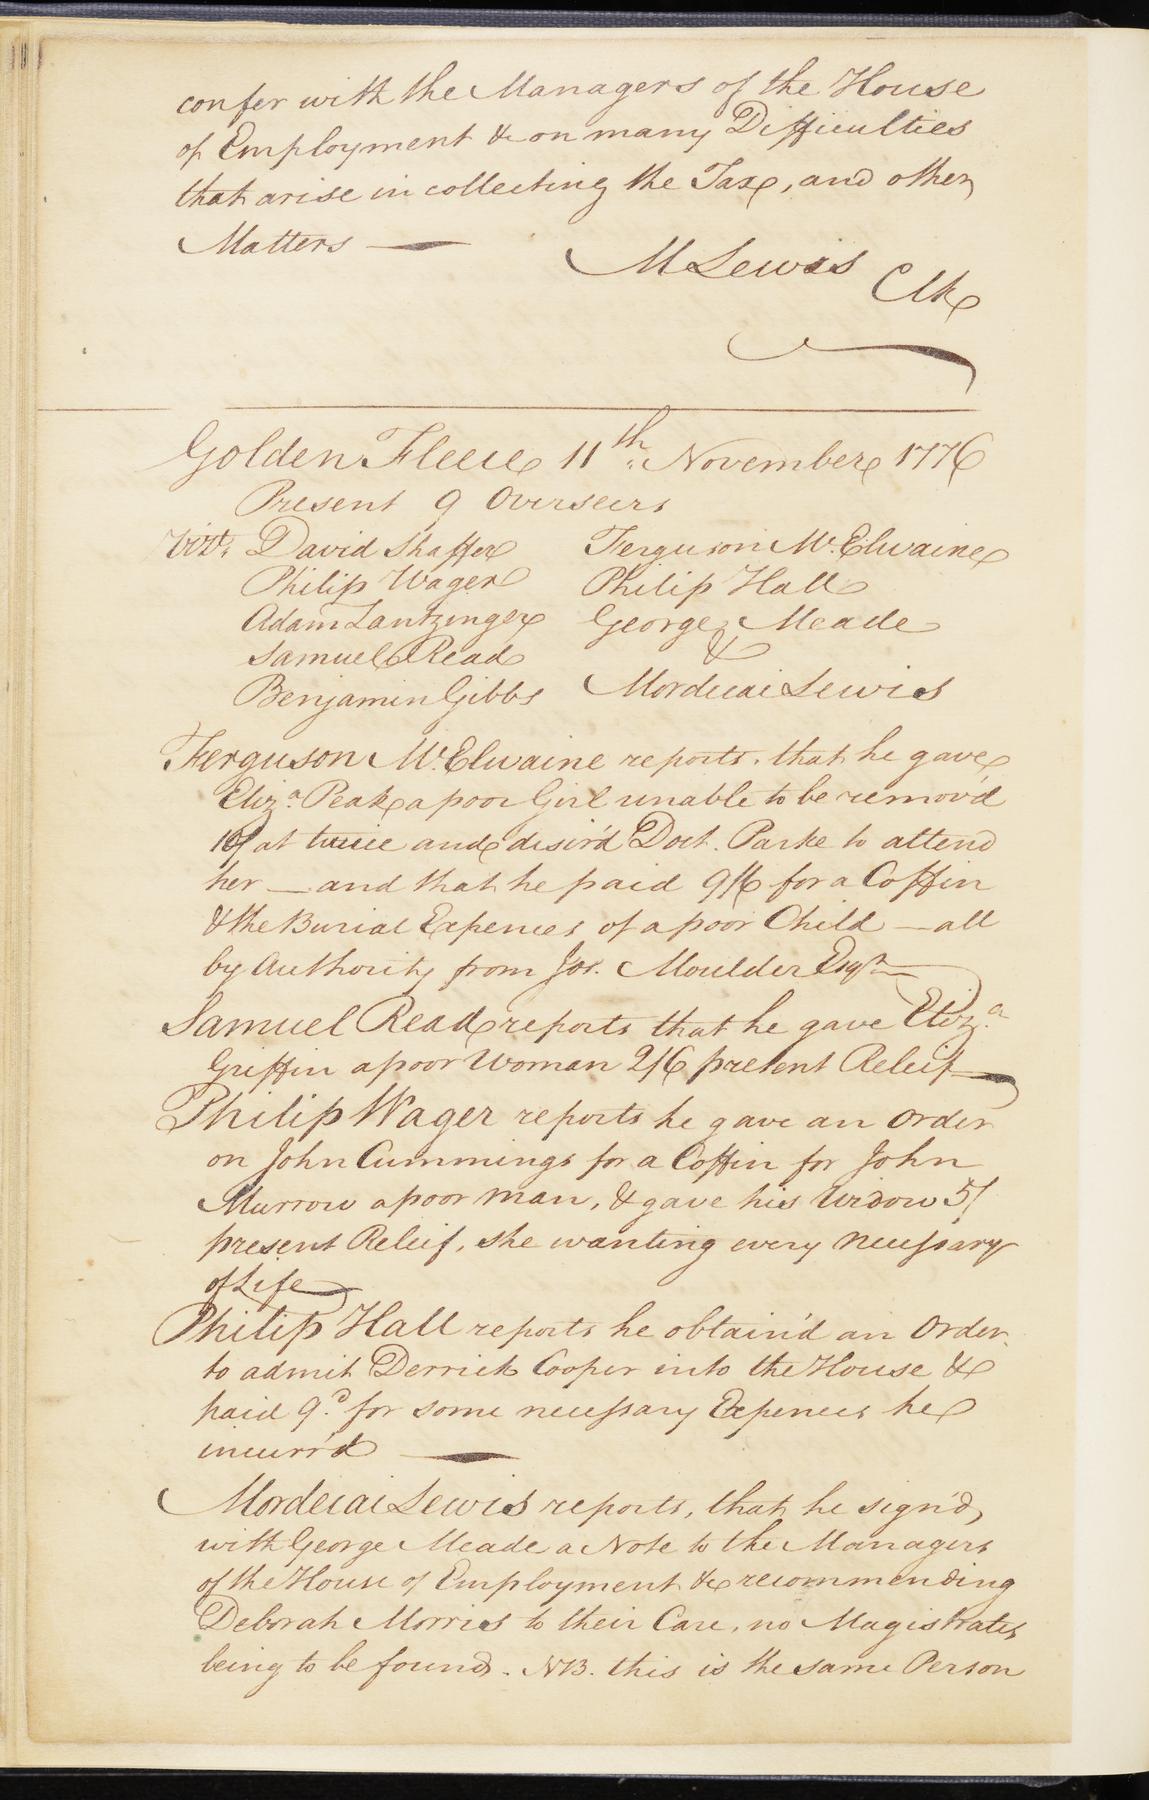 confer with the Managers of the House
of Employment &c on many Difficulties
that arise in collecting the Tax, and other
Matters —
M Lewis Clk
Golden Fleece 11th November 1776
Present 9 Overseers
Vizt. David Shaffer
Philip Wager
Adam Lantzinger
Samuel Read
Benjamin Gibbs
Ferguson McElwaine
Philip Hall
George Meade
&
Mordecai Lewis
Ferguson McElwaine reports, that he gave
Eliza. Peak a poor Girl unable to be remov'd
10/ at twice and desir'd Doct. Parke to attend
her — and that he paid 9/6 for a Coffin
& the Burial Expences of a poor Child — all
by Authority from Jos. Moulder Esqr.
Samuel Read reports that he gave Eliza.
Griffin a poor Woman 2/6 present Releif —
Philip Wager reports he gave an Order
on John Cummings for a Coffin for John
Murrow a poor man, & gave his Widow 5/
present Releif, she wanting every necessary
of Life —
Philip Hall reports he obtain'd an Order
to admit Derrick Cooper into the House &
paid 9d. for some necessary Expences he
incurr'd —
Mordecai Lewis reports, that he sign'd,
with George Meade a Note to the Managers
of the House of Employment &c recommending
Deborah Morris to their Care, no Magistrates
being to be found. NB. this is the same Person